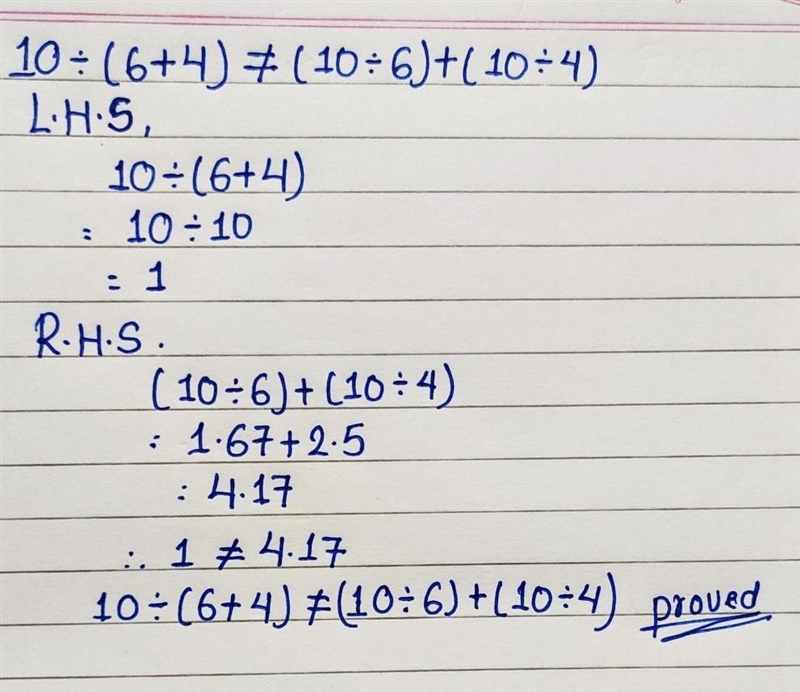 10÷(6+4) ≠ (10÷6)+(10÷4)
L.H.S,
10÷(6+4)
= 10÷10
= 1
R.H.S.
(10÷6)+(10÷4)
: 1.67+2.5
: 4.17
∴ 1 ≠ 4.17
10÷(6+4) ≠ (10÷6)+(10÷4) proved